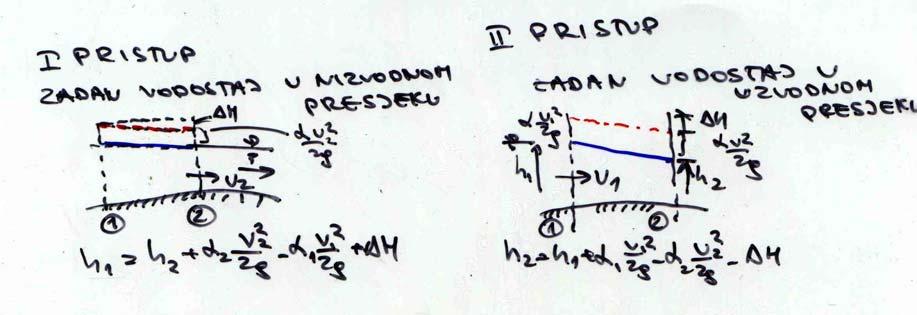 I PRISTUP
ZADAN VODOSTAJ U NIZVODNOM
PRESJEKU
ΔH
α v₂²/2g
v₂
① ②
h₁ = h₂ + α₂ v₂²/2g - α₁ v₁²/2g + ΔH
II PRISTUP
ZADAN VODOSTAJ U
UZVODNOM
PRESJEKU
α v₁²/2g
ΔH
α v₂²/2g
h₁
v₁
h₂
① ②
h₂ = h₁ + α₁ v₁²/2g - α₂ v₂²/2g - ΔH